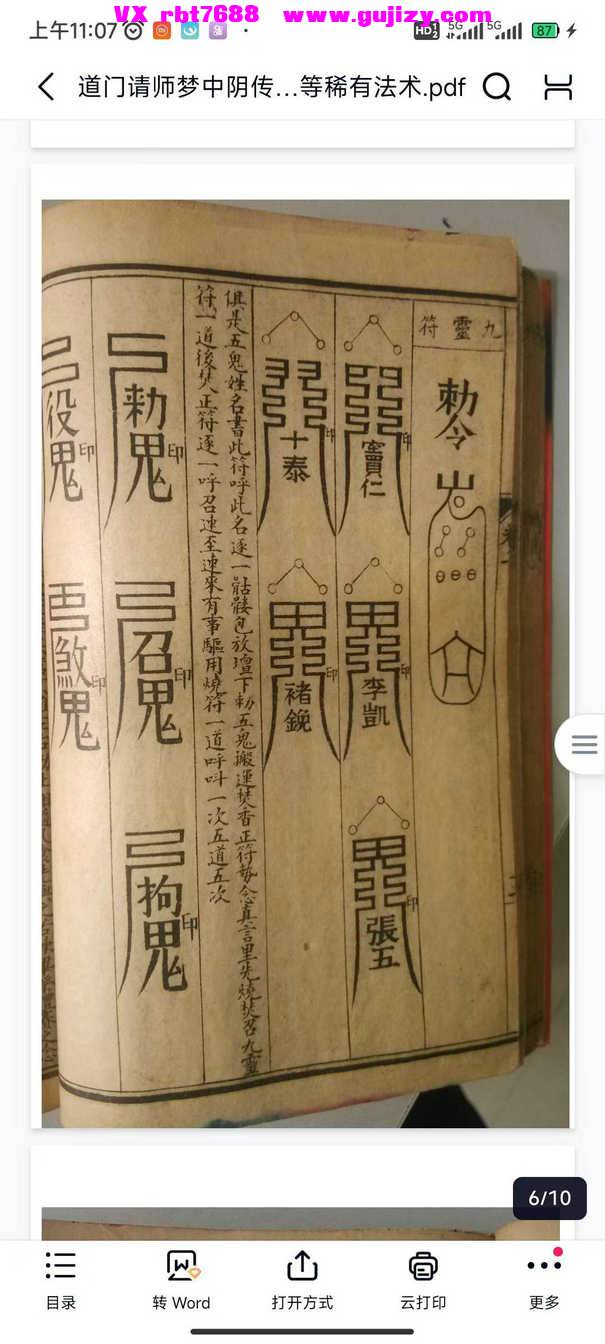 VX rbt7688 www.gujizy.com
上午11:07
HD 5G 5G 87
道门请师梦中阴传...等稀有法术.pdf
九靈符
勅令
竇仁 印
李凱 印
張五 印
十泰 印
褚鋔 印
俱是五鬼姓名書此符呼此名逐一骷髅包放壇下勅五鬼搬運焚香正符
念真言里先燒焚召九靈
符一道後焚正符逐一呼召速至速來有事驅用燒符一道呼呌一次五道五次
勅鬼 印
召鬼 印
拘鬼 印
役鬼 印
煞鬼 印
6/10
目录
转 Word
打开方式
云打印
更多